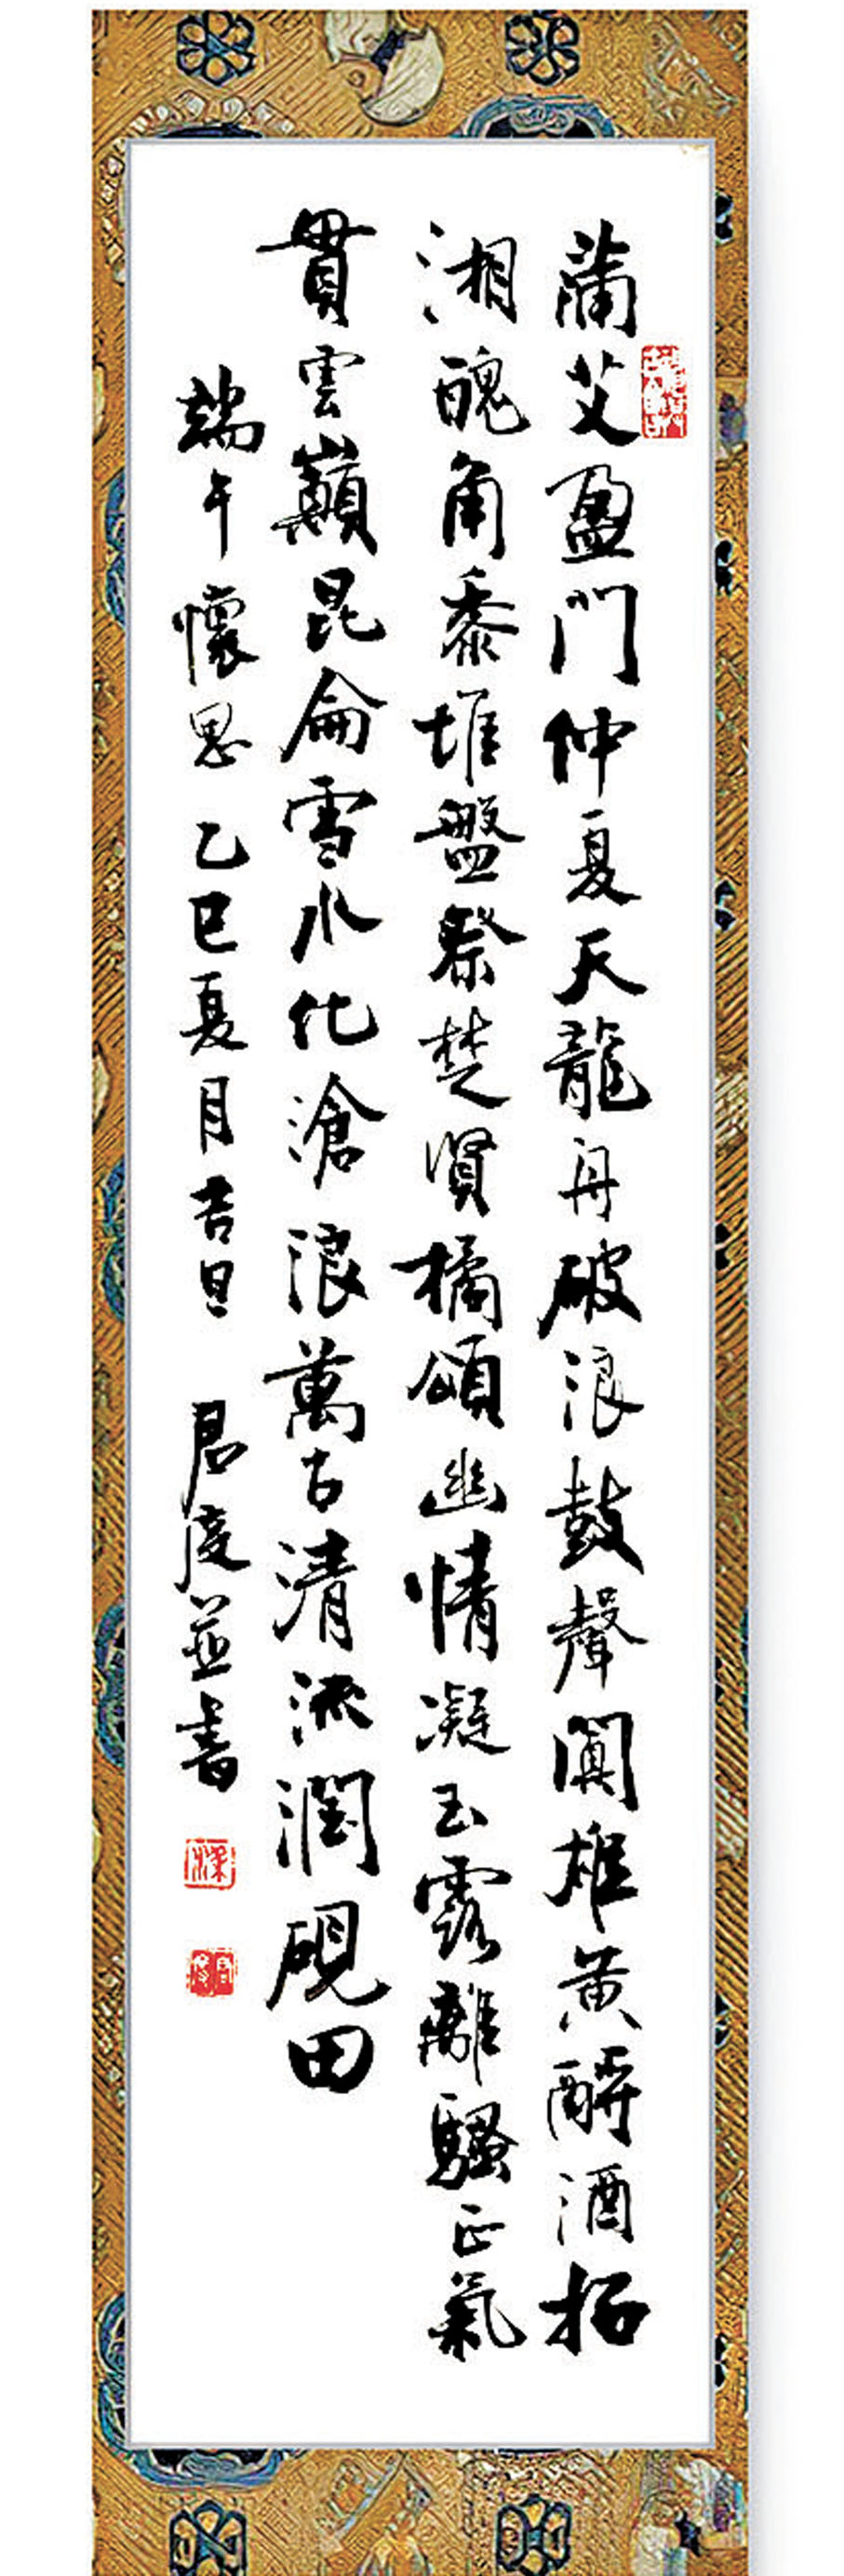 蒲艾盈門仲夏天龍舟破浪鼓聲闐雄黃酹酒招
湘魄角黍堆盤祭楚賢橘頌幽情凝玉露離騷正氣
貫雲巔昆侖雪水化滄浪萬古清流潤硯田
端午懷思 乙巳夏月吉旦 君度並書
君度